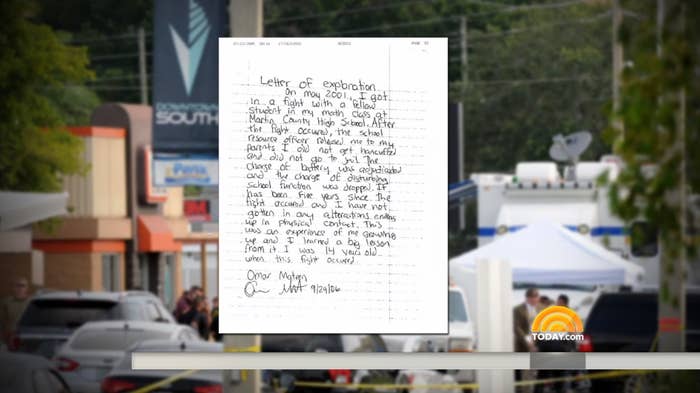 DOWNTOWN
SOUTH
Letter of explanation
On may 2001, I got
in a fight with a fellow
student in my math class at
Martin County High School. After
the fight occured, the school
resource officer released me to my
parents I did not get handcuffed
and did not go to jail. The
charge of battery was adjudicated
and the charge of disturbing
school function was dropped. It
has been five years since the
fight occured and I have not
gotten in any altercations
up in physical contact. This
was an experience of me growing
up and I learned a big lesson
from it I was 14 years old
when this fight occured.
Omar Mateen
9/29/06
TODAY.com